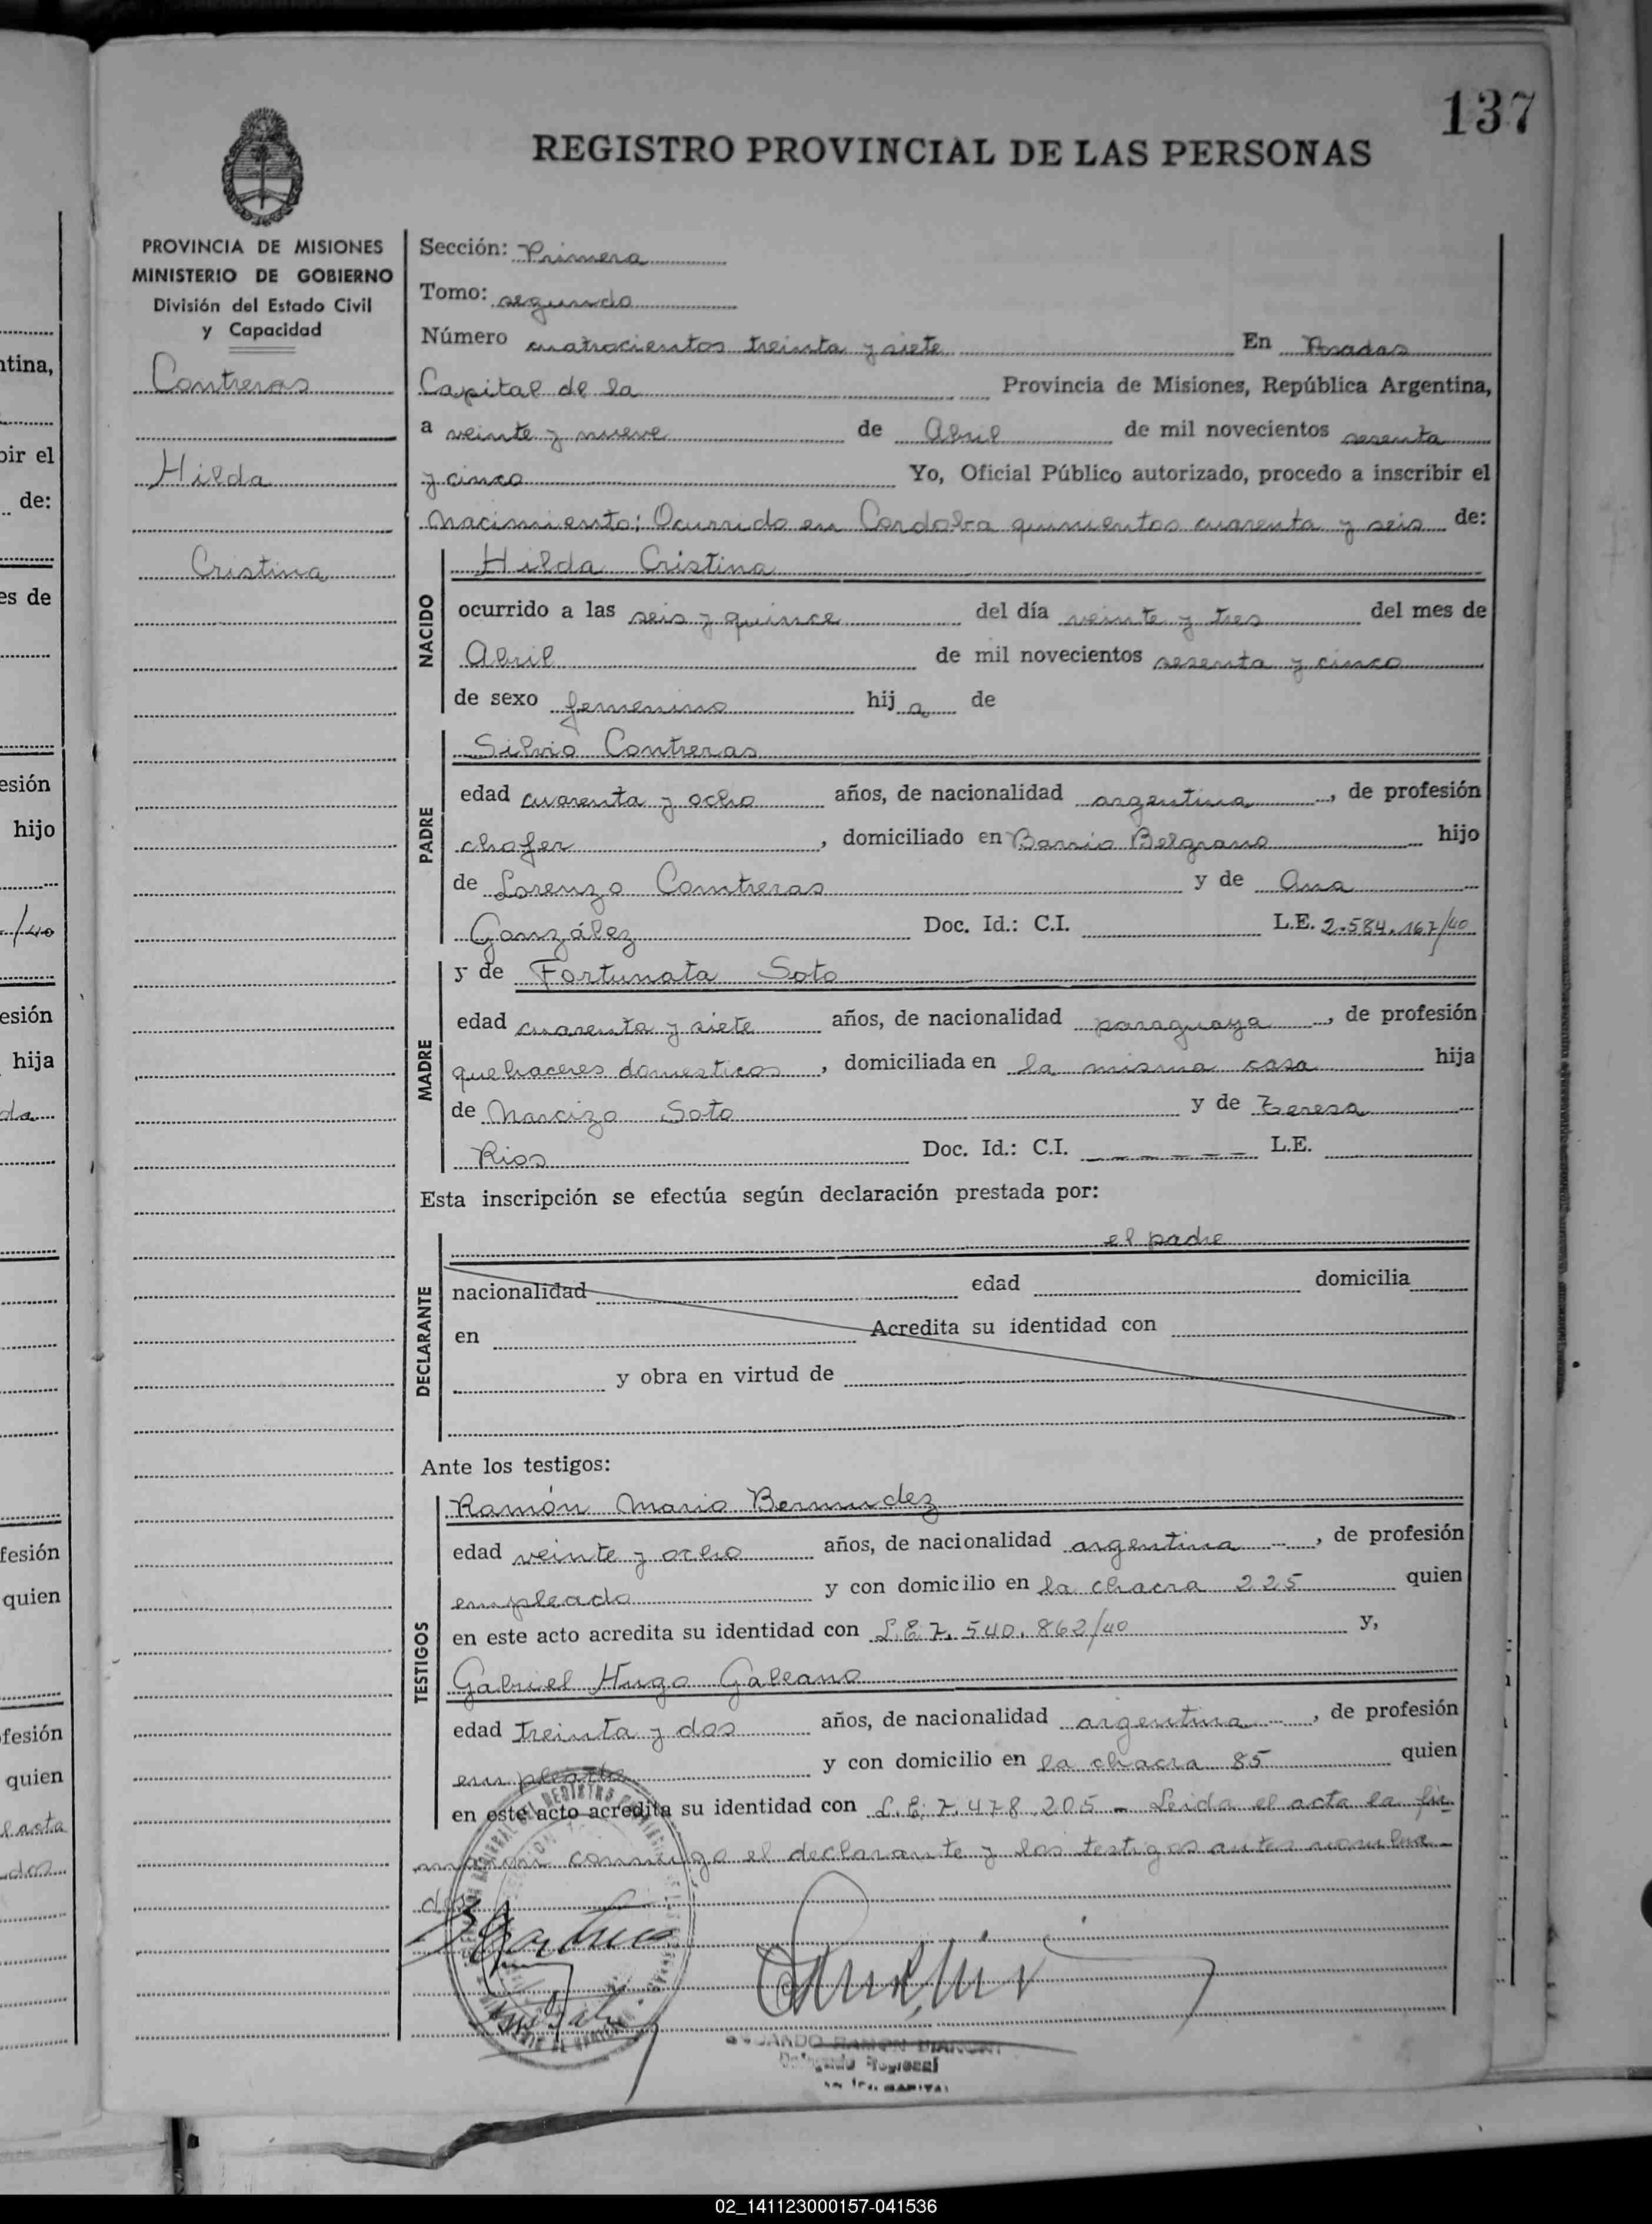 137
REGISTRO PROVINCIAL DE LAS PERSONAS
PROVINCIA DE MISIONES
MINISTERIO DE GOBIERNO
División del Estado Civil
y Capacidad
Contreras
Hilda
Cristina
Sección: Primera
Tomo: segundo
Número cuatrocientos treinta y siete En Posadas
Capital de la Provincia de Misiones, República Argentina,
a veinte y nueve de Abril de mil novecientos sesenta
y cinco Yo, Oficial Público autorizado, procedo a inscribir el
Nacimiento: Ocurrido en Cordoba quinientos cuarenta y seis de:
NACIDO
Hilda Cristina
ocurrido a las seis y quince del día veinte y tres del mes de
Abril de mil novecientos sesenta y cinco
de sexo femenino hij a de
PADRE
Silvio Contreras
edad cuarenta y ocho años, de nacionalidad argentina, de profesión
chofer, domiciliado en Barrio Belgrano hijo
de Lorenzo Contreras y de Ana
González Doc. Id.: C.I. L.E. 2.584.167/40
MADRE
y de Fortunata Soto
edad cuarenta y siete años, de nacionalidad paraguaya, de profesión
quehaceres domesticos, domiciliada en la misma casa hija
de Narcizo Soto y de Teresa
Rios Doc. Id.: C.I. - - - - - - - L.E.
Esta inscripción se efectúa según declaración prestada por:
DECLARANTE
el padre
nacionalidad edad domicilia
en Acredita su identidad con
y obra en virtud de
Ante los testigos:
TESTIGOS
Ramón Mario Bermudez
edad veinte y ocho años, de nacionalidad argentina, de profesión
empleado y con domicilio en la chacra 225 quien
en este acto acredita su identidad con L.E. 7.540.862/40 y,
Gabriel Hugo Galeano
edad treinta y dos años, de nacionalidad argentina, de profesión
empleado y con domicilio en la chacra 85 quien
en este acto acredita su identidad con L.E. 7.478.205 - Leida el acta la fir-
maron conmigo el declarante y los testigos antes nombra-
dos
RAMON
Delegado Regional
CAPITAL
ntina,
bir el
de:
es de
esión
hijo
/40
esión
hija
da
fesión
quien
fesión
quien
l acta
dos
02_141123000157-041536